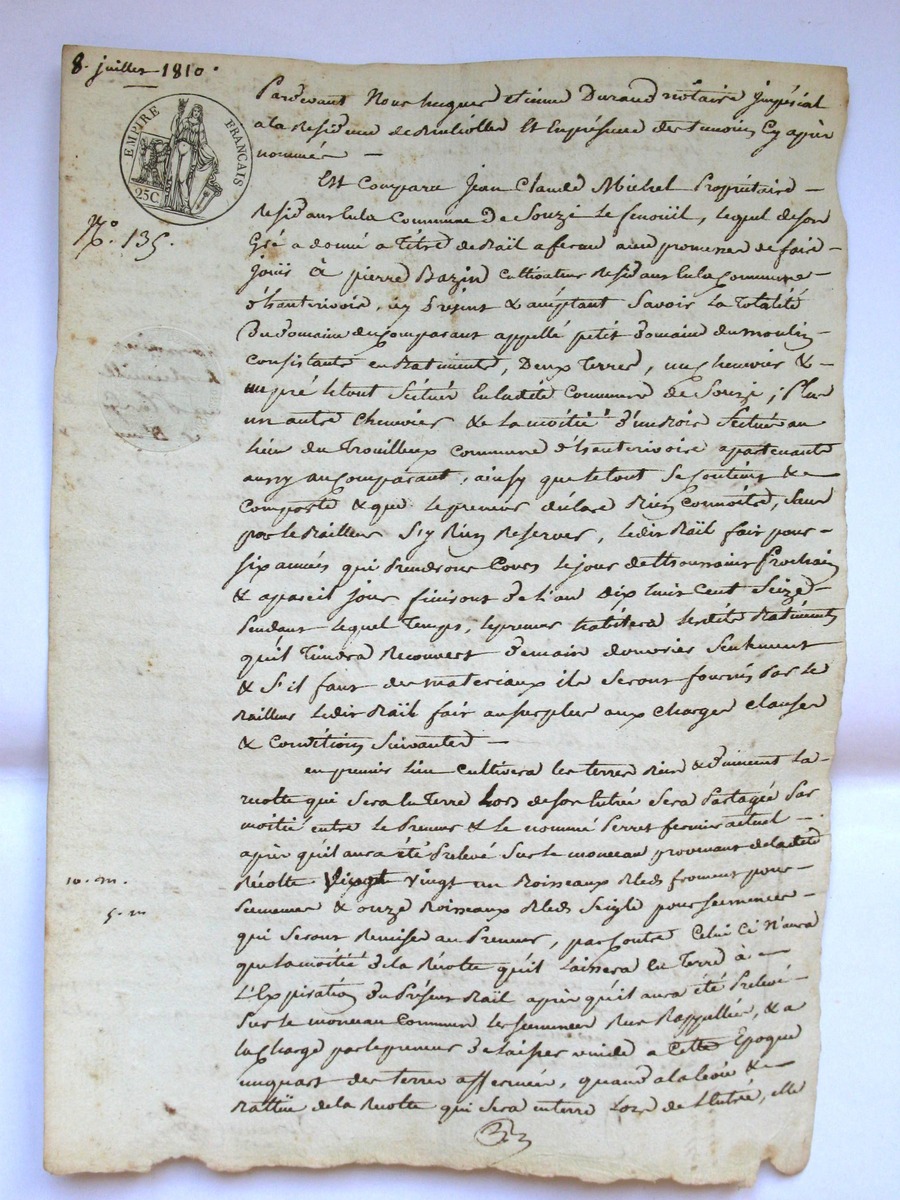 8. juillet 1810.
EMPIRE FRANÇAIS
25C
No. 135.
Pardevant Nous hugues etienne Durand notaire Impérial
a la Residence de Et Enpresence des temoins Cy après
nommés —
Est Comparu Jean Claude Michel Propriétaire —
Residant enla Commune De Souzi Le , lequel deson
Gré a donné a titre de Bail a ferme avec promesse de faire
jouir à pierre Bazin Cultivateur Residant enla Commune —
d'hauterivoir, icy Present & acceptant Savoir La Totalité
Du Domaine du Comparant appellé petit Domaine du moulin
Consistante en Batiments, Deux Terres, un chenevier &
un pré le tout Situés En la dite Commune de Souzi; Plus
un autre Chenevier & de La moitié d'un Situés au
lieu du Trouilleux Commune d'hauterivoir apartenants
aussy au Comparant, ainsy que le tout Se Contient & Se
Composte & que Le preneur déclare Bien Connoitre, Sans
par le Bailleur S'y Rien Reserver, Le dit Bail fait pour —
Six années qui Prendront Cours le jour de thoussaint Prochain
& a pareil jour finiront De L'an Dix huit Cent Seize —
Pendant Lequel Temps, le preneur habitera lesdits Batiments
qu'il Tiendra Recouvert Demain d'ouvrier Seulement
& S'il faut des materiaux ils Seront fournis Par le
Bailleur Le dit Bail fait au Surplus aux Charges Clauses
& Conditions Suivantes —
en premier Lieu Cultivera les terres Bien & Duement La
recolte qui Sera En Terre Lors de Son Entrée Sera Partagée Par
moitié entre Le Preneur & Le nommé Perret fermier actuel —
après qu'il aura été Prelevé Sur le monceau provenant de la dite
Récolte vingt un Boisseaux Bled froment pour —
Semences & onze Boisseaux Bled Seigle pour Semences —
qui Seront Remise au Preneur, par Contre Celui Ci N'aura
que La moitié de la Récolte qu'il Laissera En Terre à —
L'Expiration Du Présent Bail après qu'il aura été Prelevé —
Sur le monceau Commun les Semences Rappellées, & a
la Charge par le preneur De laisser vuide a Cette Epoque
un quart des terres affermées, quand a la levée & —
Battüe de la Recolte qui Sera en terre Lors de L'Entrée, elle
10. m.
5. m